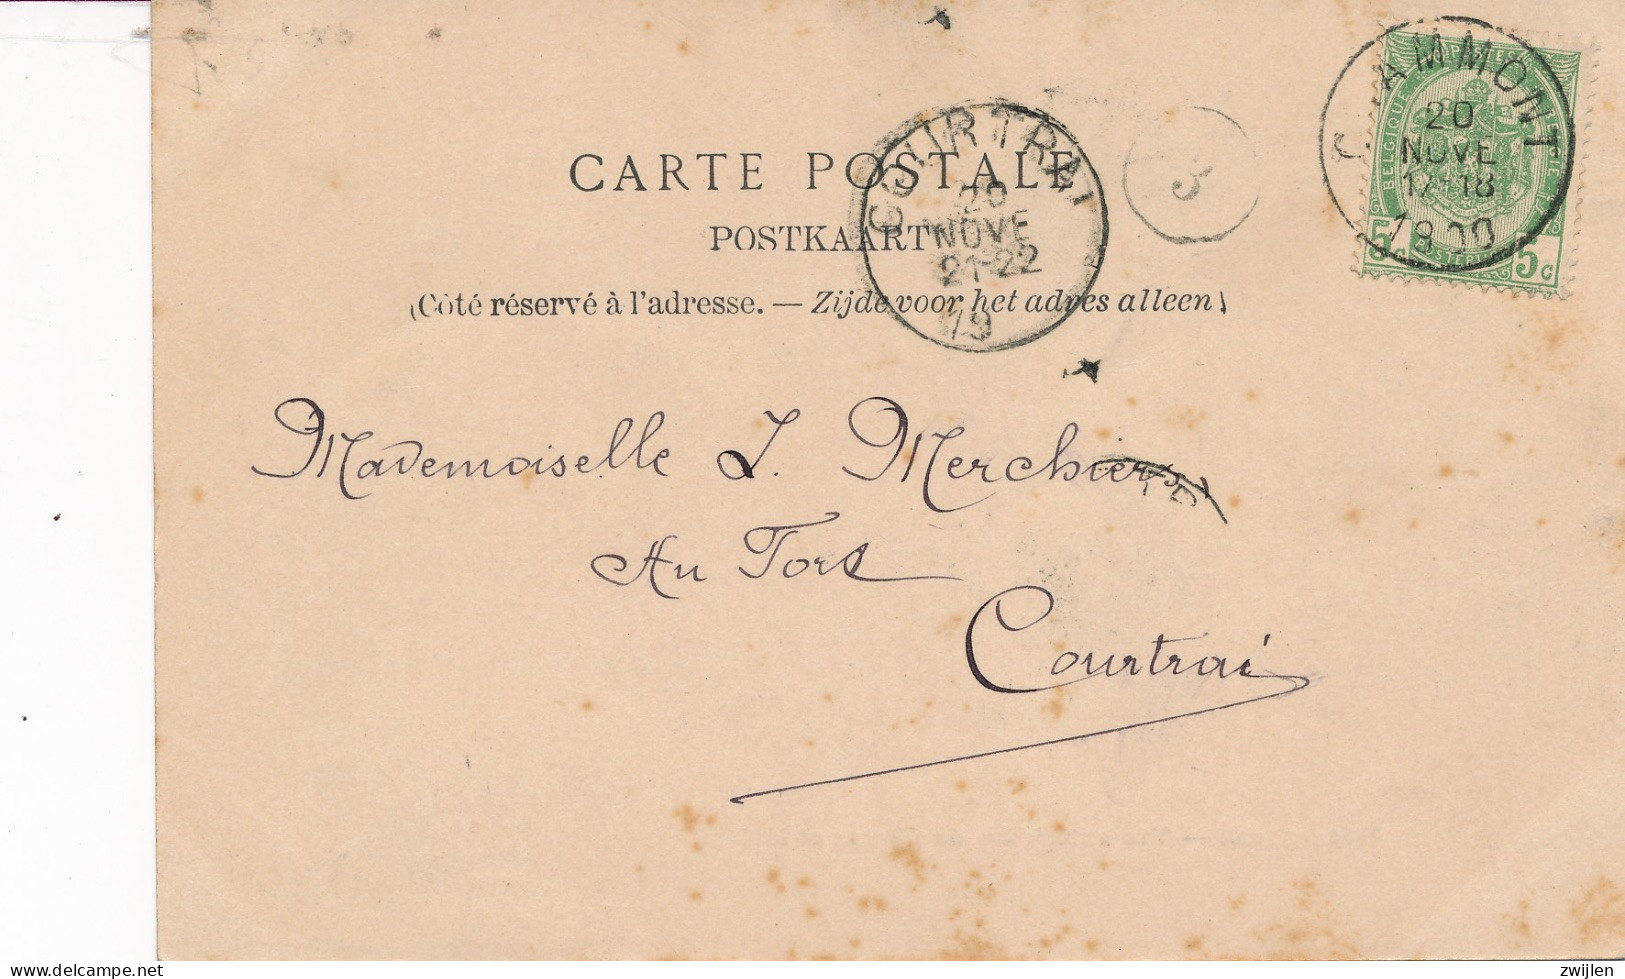 CARTE POSTALE
POSTKAART
(Côté réservé à l'adresse. — Zijde voor het adres alleen)
COURTRAI
20
NOVE
21-22
19
3
GAMMONT
20
NOVE
17-18
1900
BELGIQUE
5c 5c
Mademoiselle J. Merchiers
Au Fort
Courtrai
delcampe.net
zwijlen